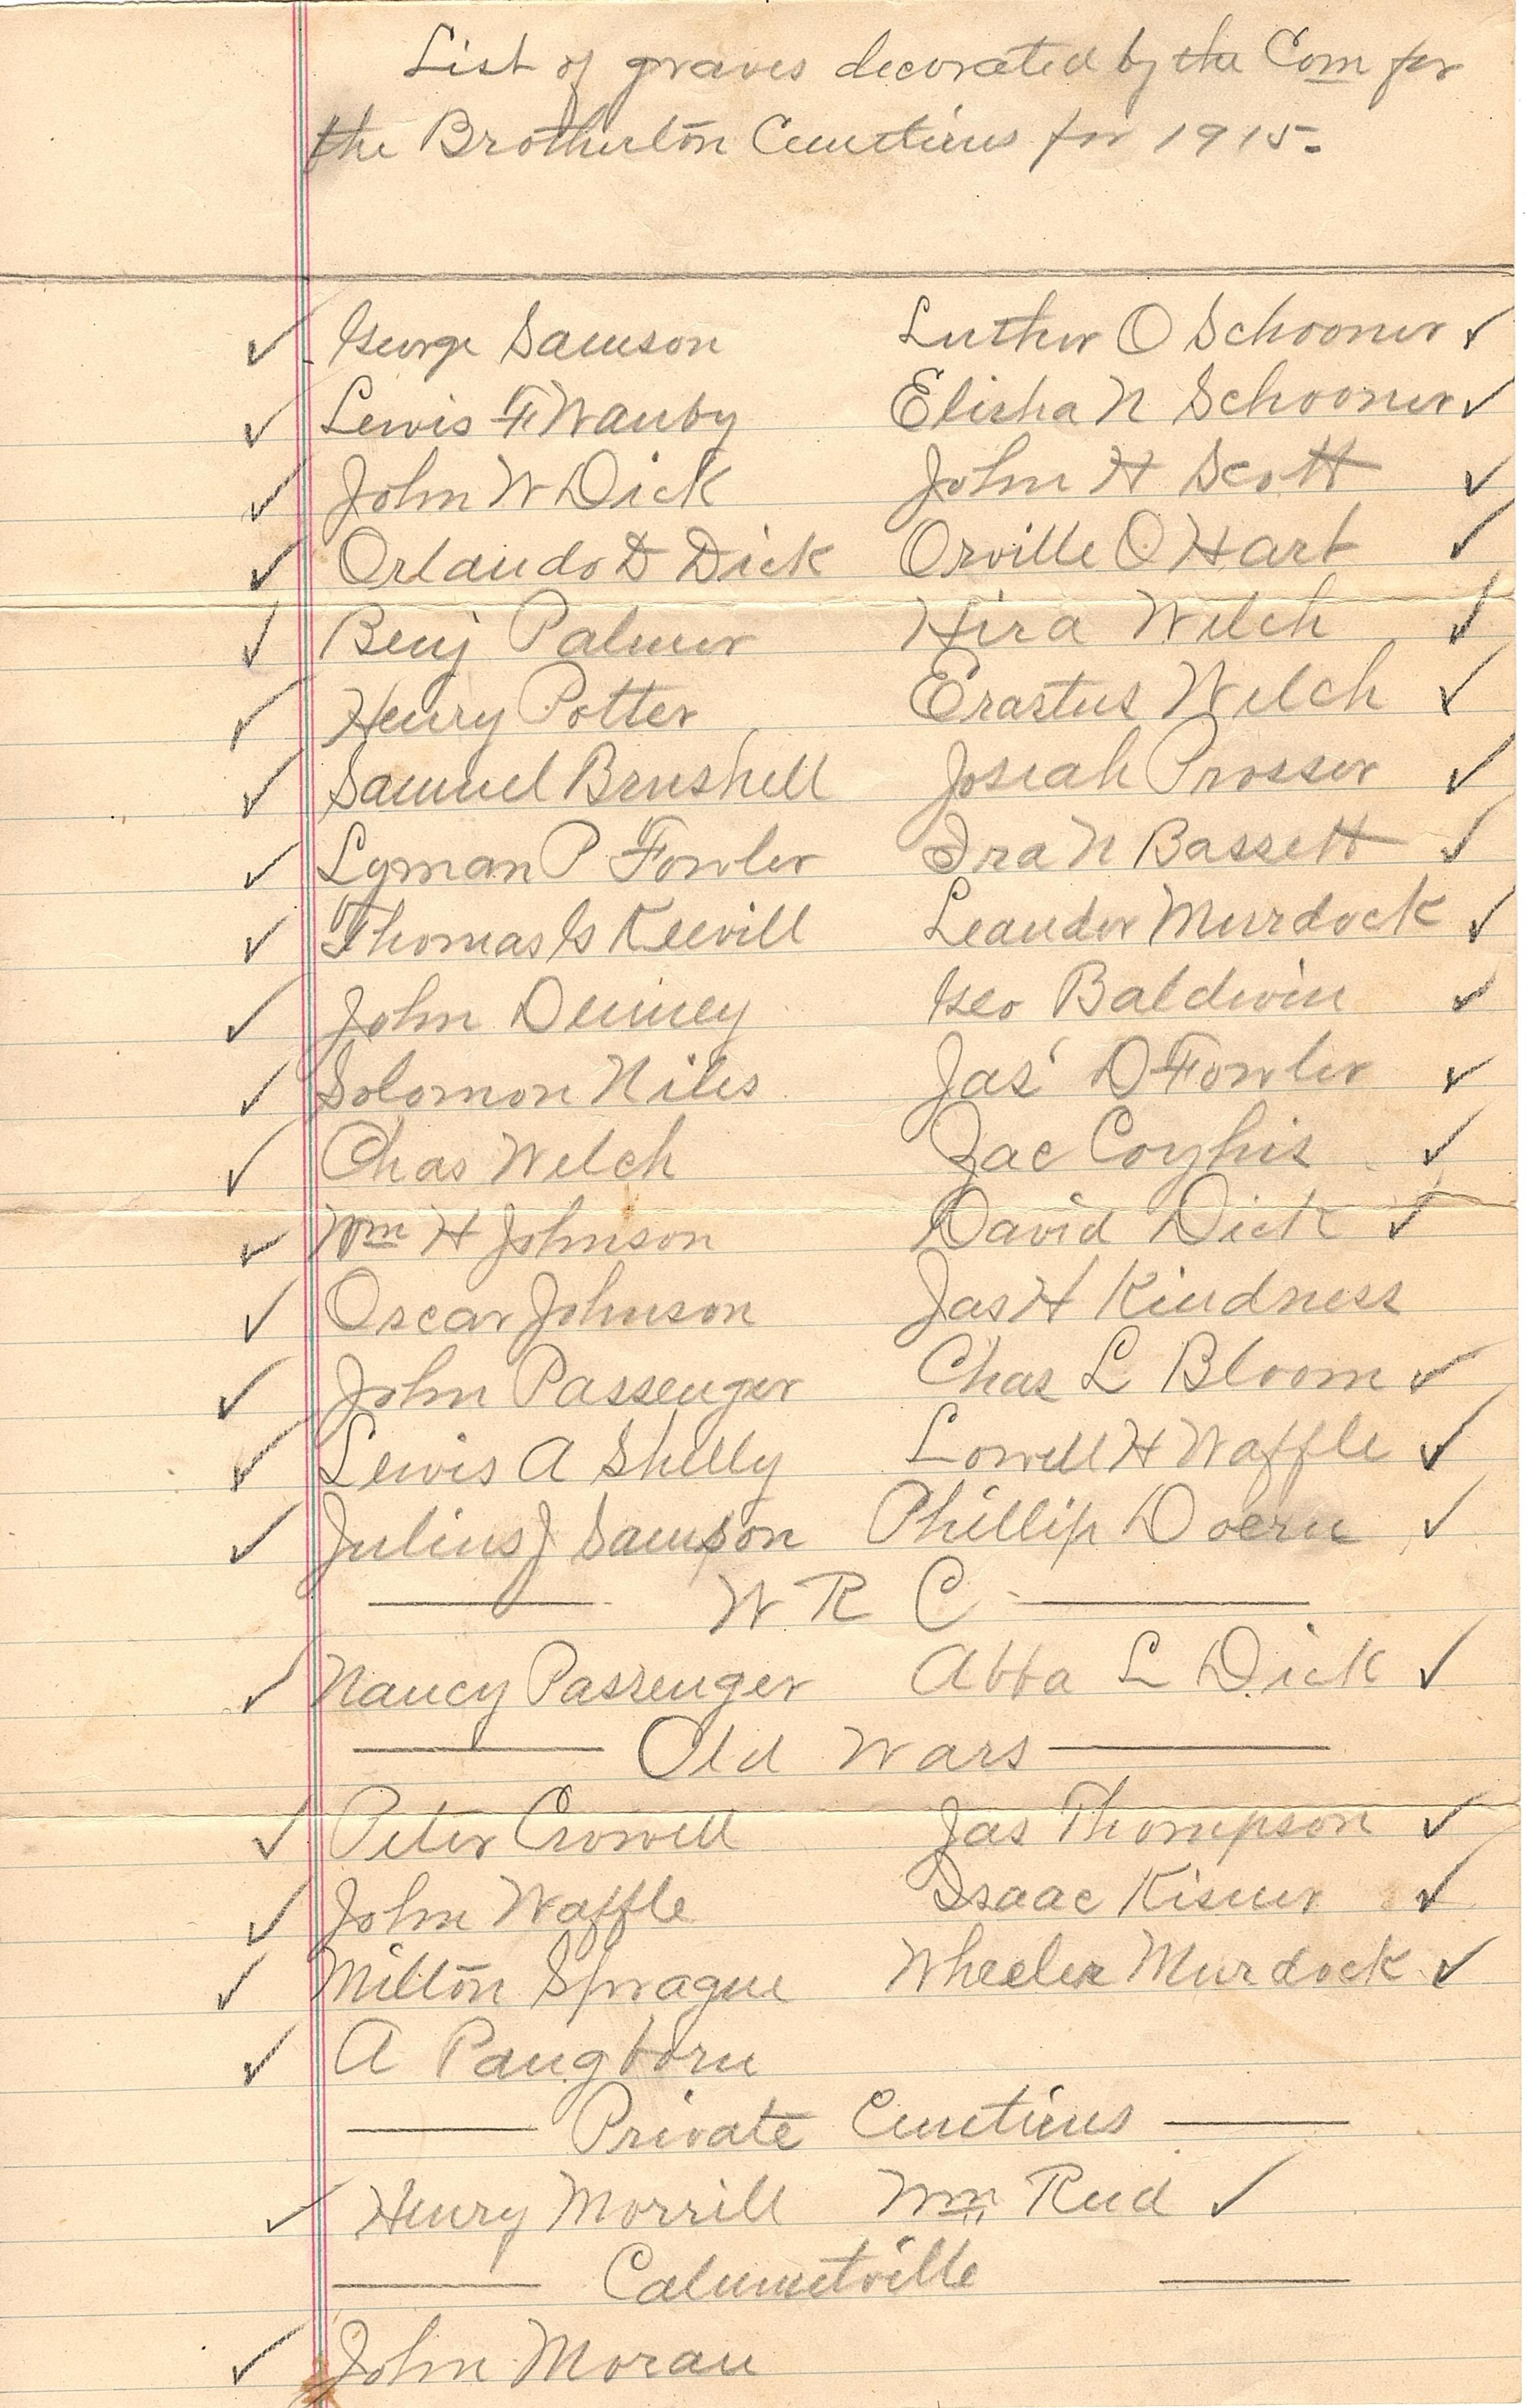 List of graves decorated by the Com for
the Brotherton Cemeteries for 1915-
✓ George Samson Luther O Schooner ✓
✓ Lewis F Wauby Elisha N Schooner ✓
✓ John W Dick John H Scott ✓
✓ Orlando D Dick Orville O Hart ✓
✓ Benj Palmer Hira Welch ✓
✓ Henry Potter Erastus Welch ✓
✓ Samuel Brushell Josiah Prosser ✓
✓ Lyman P Fowler Ira N Bassett ✓
✓ Thomas G Keevill Leander Murdock ✓
✓ John Geo Baldwin ✓
✓ Solomon Niles Jas D Fowler ✓
✓ Chas Welch Zac Coyhis ✓
✓ Wm H Johnson David Dick ✓
✓ Oscar Johnson Jas H Kindness
✓ John Passenger Chas L Bloom ✓
✓ Lewis A Shelly Lowell H Waffle ✓
✓ Julius J Sampson Phillip Doern ✓
W R C
✓ Nancy Passenger Abba L Dick ✓
Old Wars
✓ Peter Crowell Jas Thompson ✓
✓ John Waffle Isaac Kisner ✓
✓ Milton Sprague Wheeler Murdock ✓
✓ A Pangborn
Private Cemeteries
✓ Henry Morrill Wm Reed ✓
Calumetville
✓ John Moran